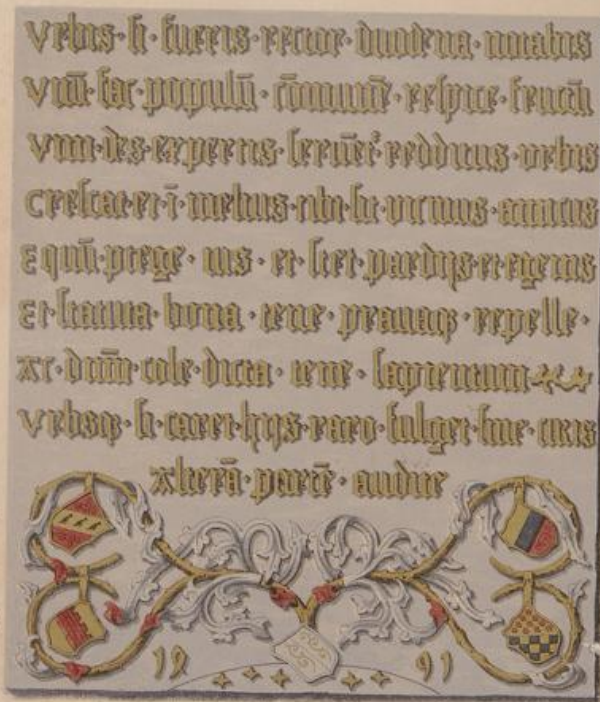 Vrbis · si · fueris · rector · duodena · notabis
Vnū · fac · populū · cōmunē · respice · fructū
Vnu · des · expertis · seruēt · redditus · vrbis
Crescat · et · ī · melius · tibi · sit · vicinus · amicus
Equū · ptege · ius · et · siet · par · egenis
Et · statuta · bona · tene · prauaq3 · repelle ·
xc · dnm · cole · dicta · tene · sapientum
Vrbsq3 · si · caret · hijs · raro · fulget · sine
alterā · partē · audite
19 91